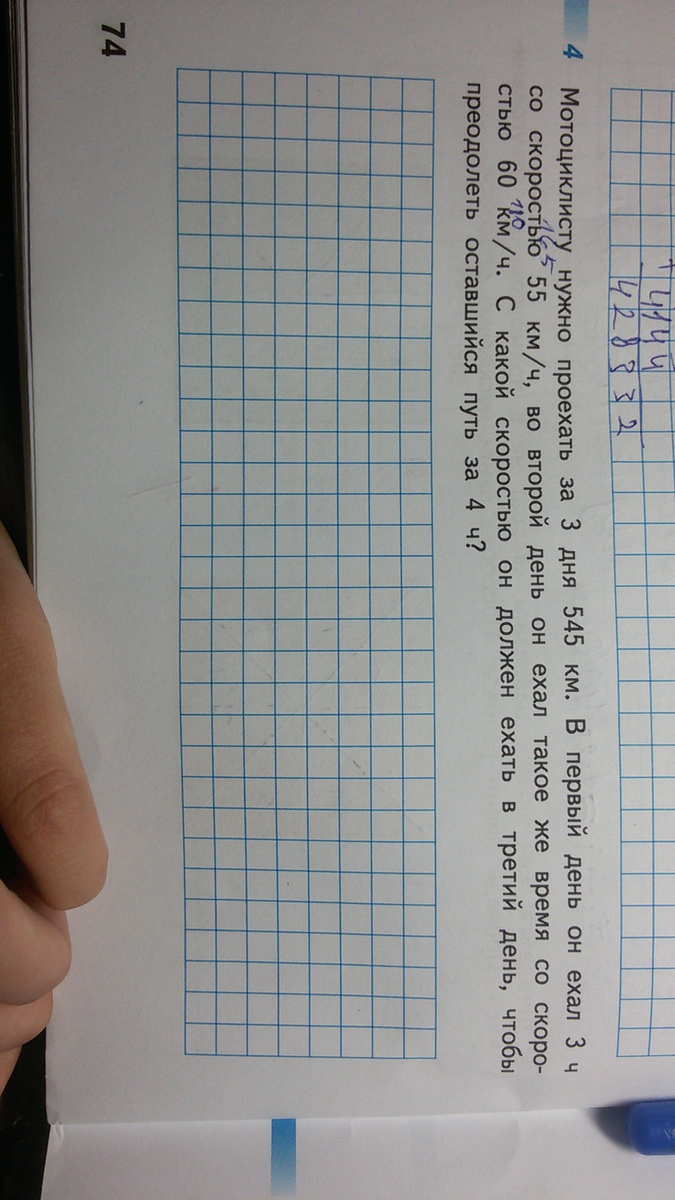 4144
428832
4 Мотоциклисту нужно проехать за 3 дня 545 км. В первый день он ехал 3 ч
165
со скоростью 55 км/ч, во второй день он ехал такое же время со скоро-
стью 60 км/ч. С какой скоростью он должен ехать в третий день, чтобы
преодолеть оставшийся путь за 4 ч?
74